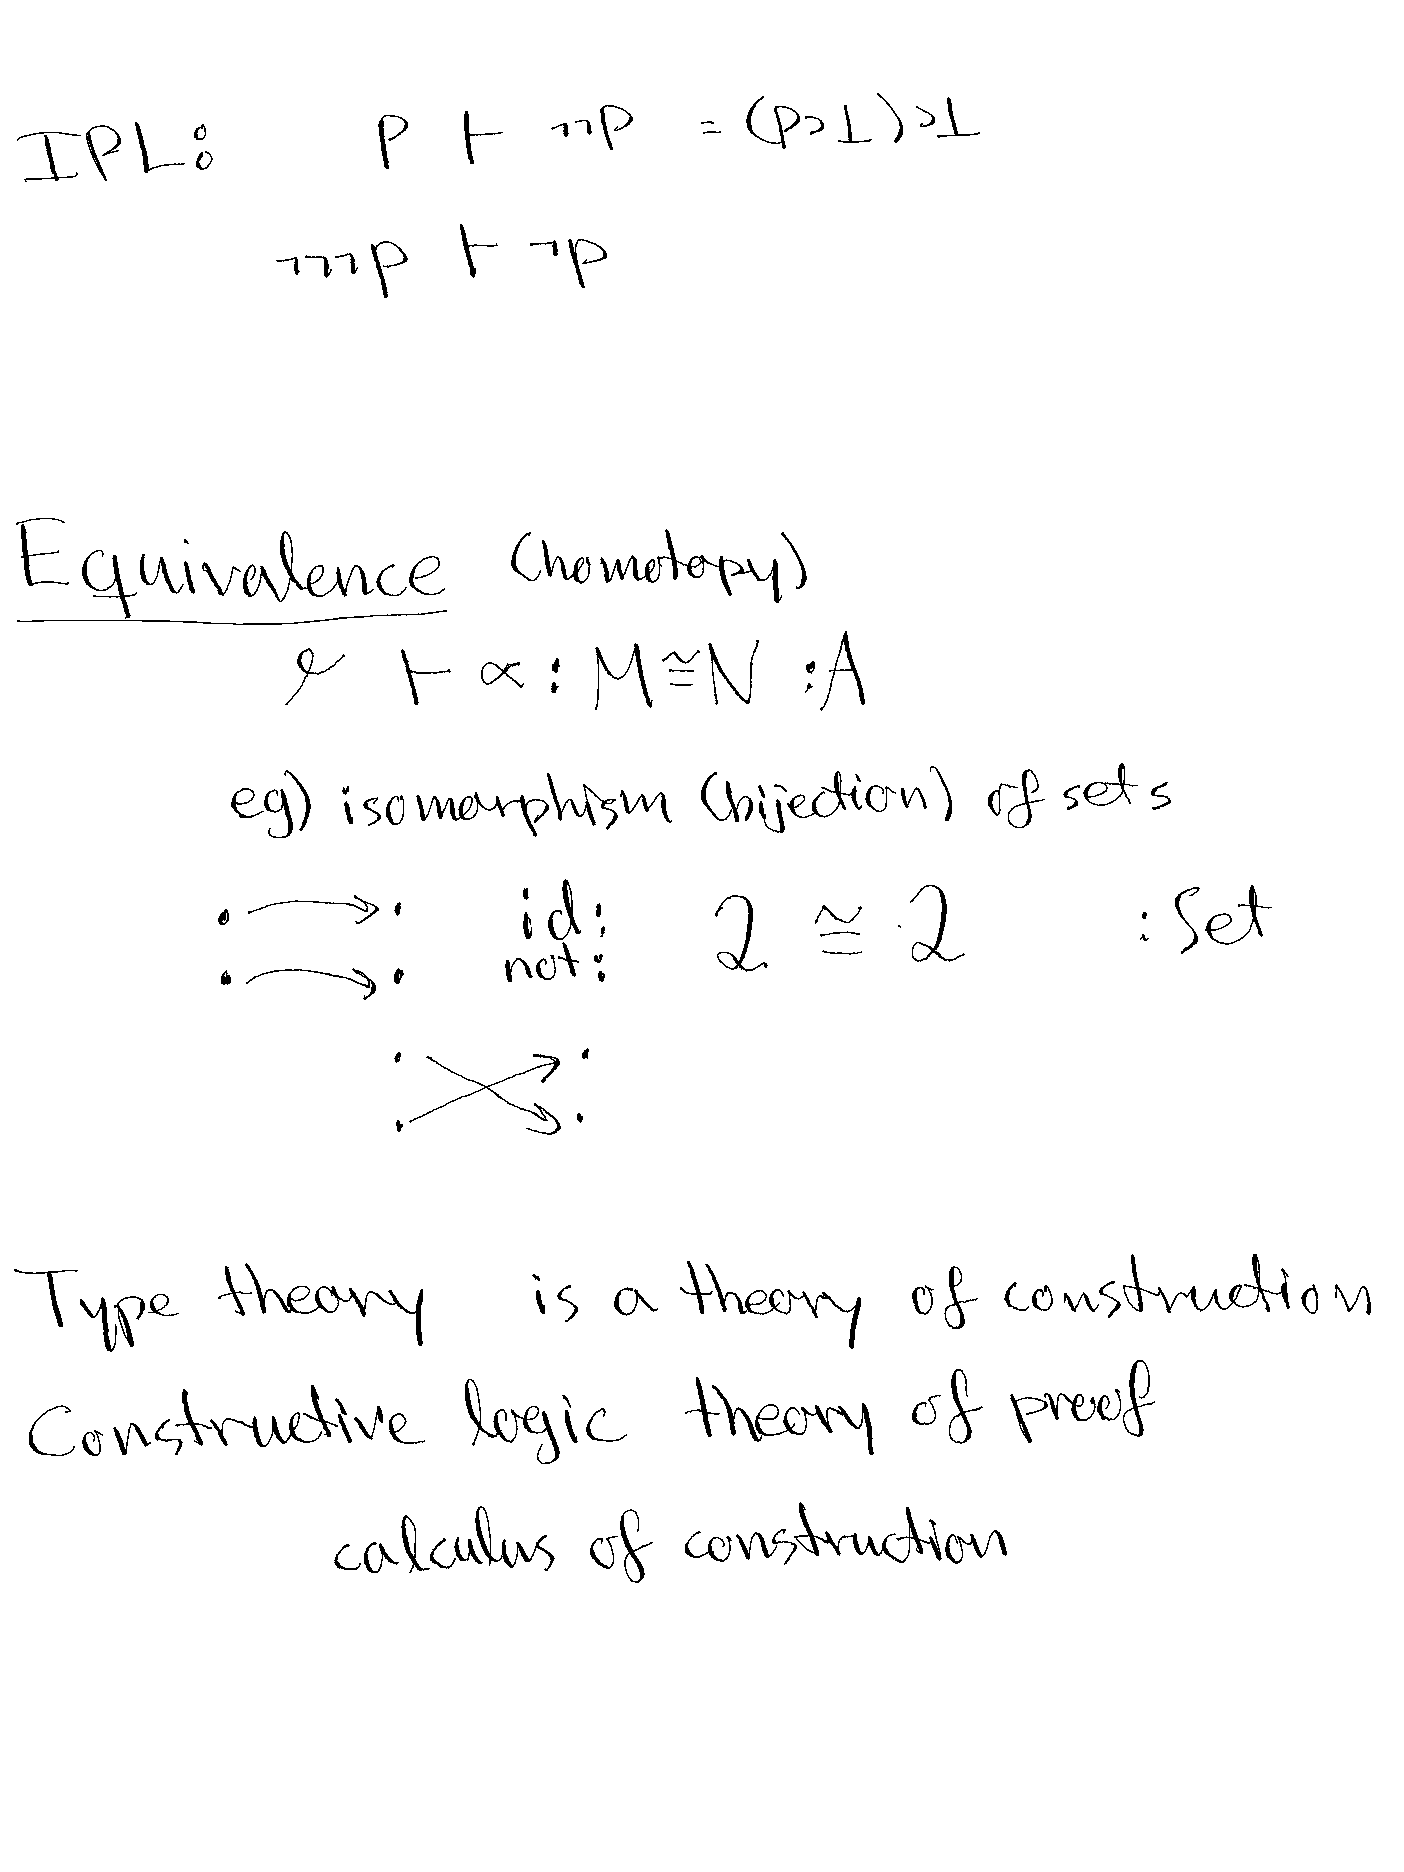 IPL: P ⊢ ¬¬P = (P⊃⊥)⊃⊥
¬¬¬P ⊢ ¬P
Equivalence (homotopy)
⊢ α : M ≅ N : A
eg) isomorphism (bijection) of sets
id: 2 ≅ 2 : Set
not:
Type theory is a theory of construction
Constructive logic theory of proof
calculus of construction